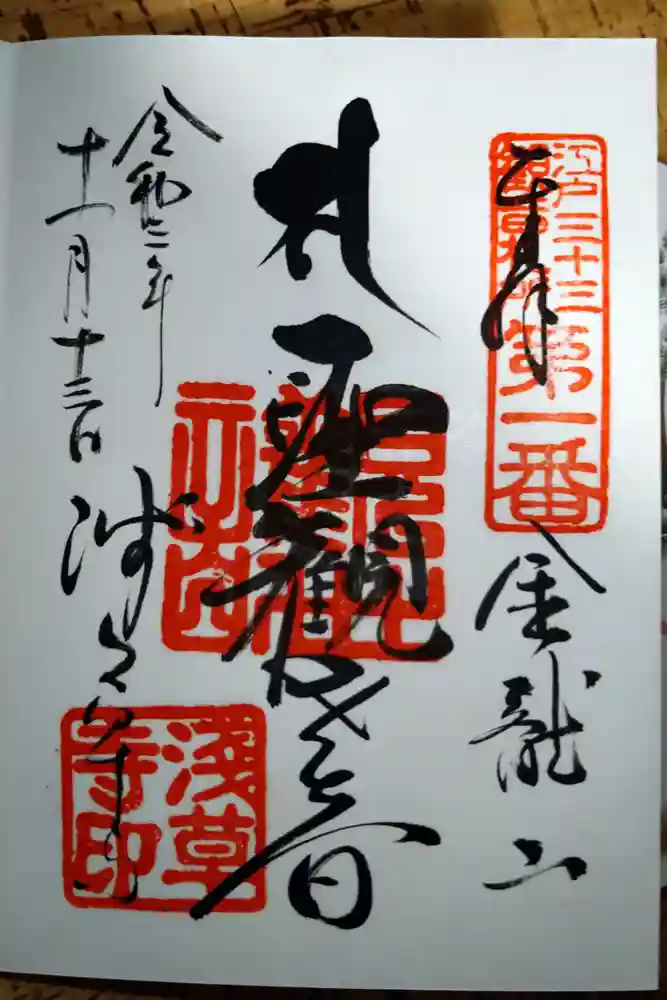 奉拝
江戸三十三
第一番
金龍山
聖観世音
令和二年
十一月十三日
浅草寺
淺草
寺印